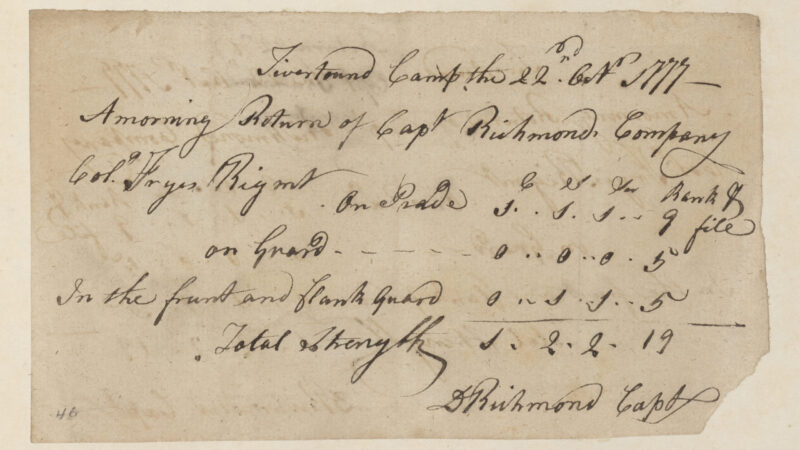 Tivertound Camp the 22nd Octr 1777
A morning Return of Capt Richmonds Company
Coll Fryes Rigmt
On Prade 1 .. 1 .. 1 .. 9 Rank & file
on Guard 0 .. 0 .. 0 . 5
In the frunt and flank Guard 0 .. 1 . 1 .. 5
Total Strength 1 . 2 . 2 . 19
D Richmond Capt
46